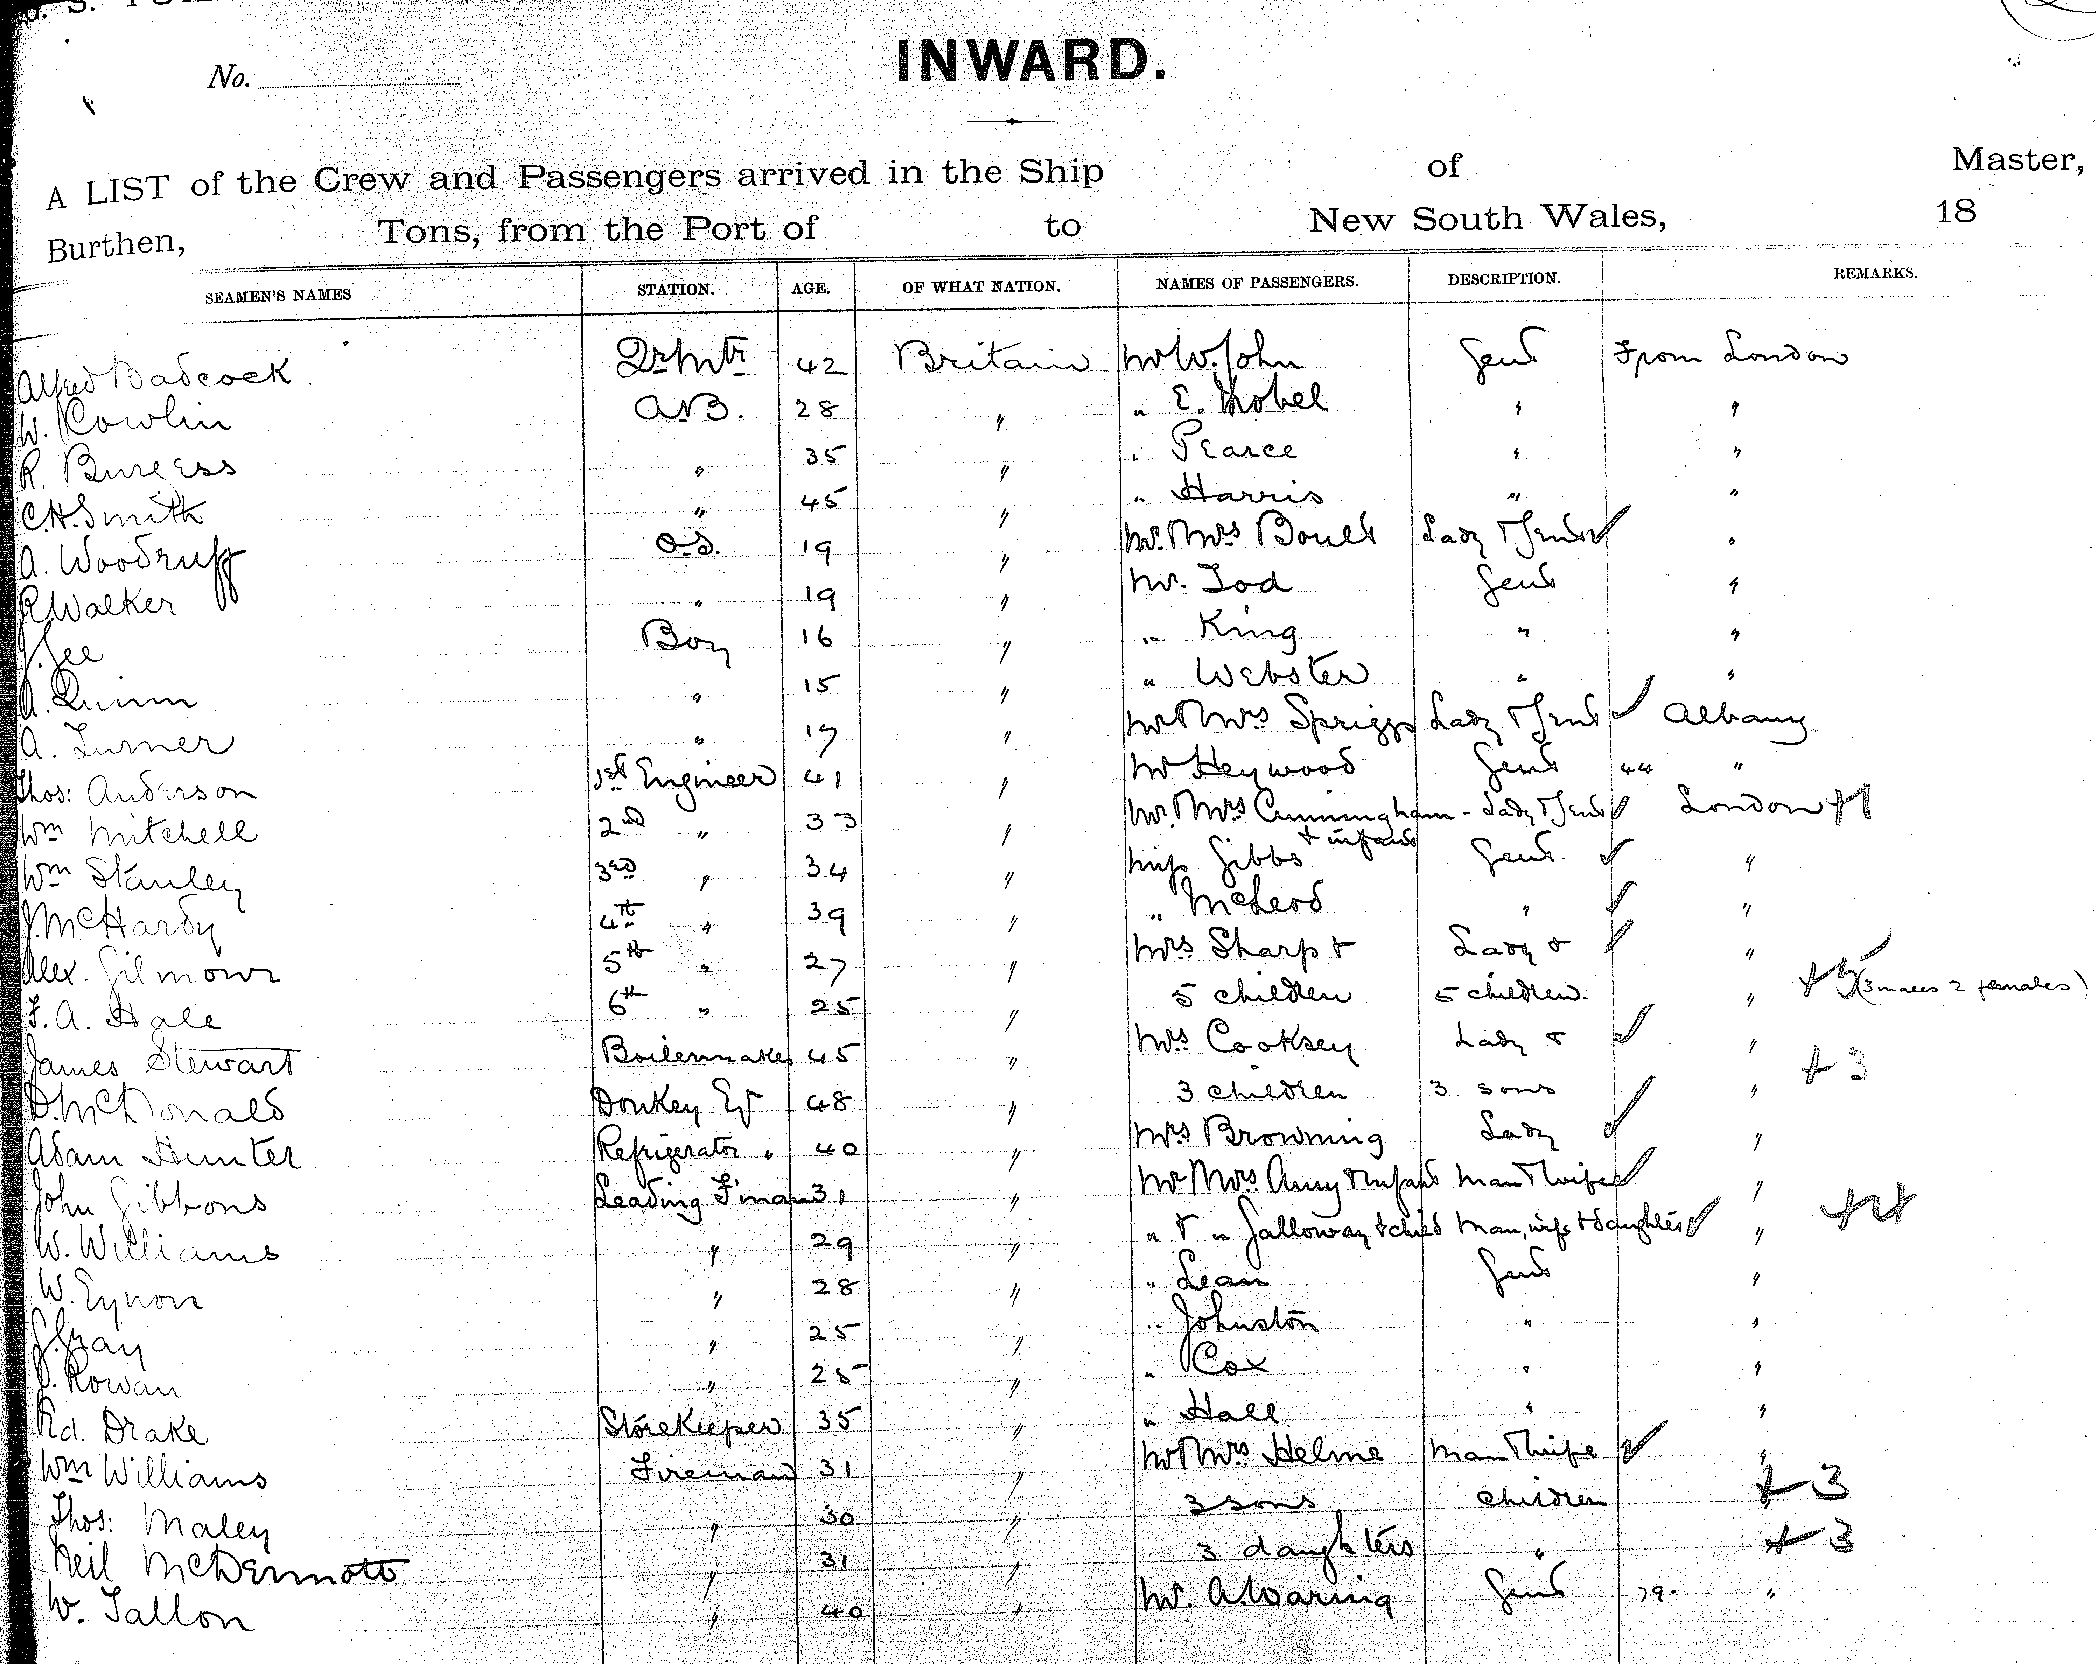 No.
INWARD.
A LIST of the Crew and Passengers arrived in the Ship of Master,
Burthen, Tons, from the Port of to New South Wales, 18
SEAMEN'S NAMES STATION. AGE. OF WHAT NATION. NAMES OF PASSENGERS. DESCRIPTION. REMARKS.
Alfred Badcock Qr Mtr 42 Britain Mr W. John Gent From London
W. Cowlin A.B. 28 " " E. Mobel " "
R. Burgess " 35 " " Pearce " "
C.H. Smith " 45 " " Harris " "
A. Woodruff O.S. 19 " Mr & Mrs Boult Lady & Gent "
R. Walker " 19 " Mr. Tod Gent "
J. Lee Boy 16 " " King " "
A. Quinn " 15 " " Webster " "
A. Turner " 17 " Mr & Mrs Spriggs Lady & Gent Albany
Thos: Anderson 1st Engineer 41 " Mr Heywood Gent "
Wm Mitchell 2nd " 33 " Mr. & Mrs Cunningham - Lady & Gent London + 1
& infant
Wm Stanley 3rd " 34 " Miss Gibbs Gent "
J. McHardy 4th " 39 " " McLeod " "
Alex. Gilmour 5th " 27 " Mrs Sharp & Lady & "
F. A. Hale 6th " 25 " 5 children 5 children " + 5 (3 males 2 females)
James Stewart Boilermaker 45 " Mrs Cooksey Lady & "
D. McDonald Donkey Egr 48 " 3 children 3 sons " + 3
Adam Hunter Refrigerator " 40 " Mrs Browning Lady "
John Gibbons Leading F'man 31 " Mr & Mrs Amy & Infant Man & wife "
W. Williams " 29 " " & " Galloway & child Man, wife & daughter "
W. Eynon " 28 " " Lean Gent "
J. Gray " 25 " " Johnston " "
Rowan " 25 " " Cox " "
Rd. Drake Storekeeper 35 " " Hall " "
Wm Williams Fireman 31 " Mr & Mrs Helme Man & wife "
Thos: Maley " 30 " 3 sons children + 3
Neil McDermott " 31 " 3 daughters " + 3
W. Tallon " 40 " Mr. A Waring Gent 79. "